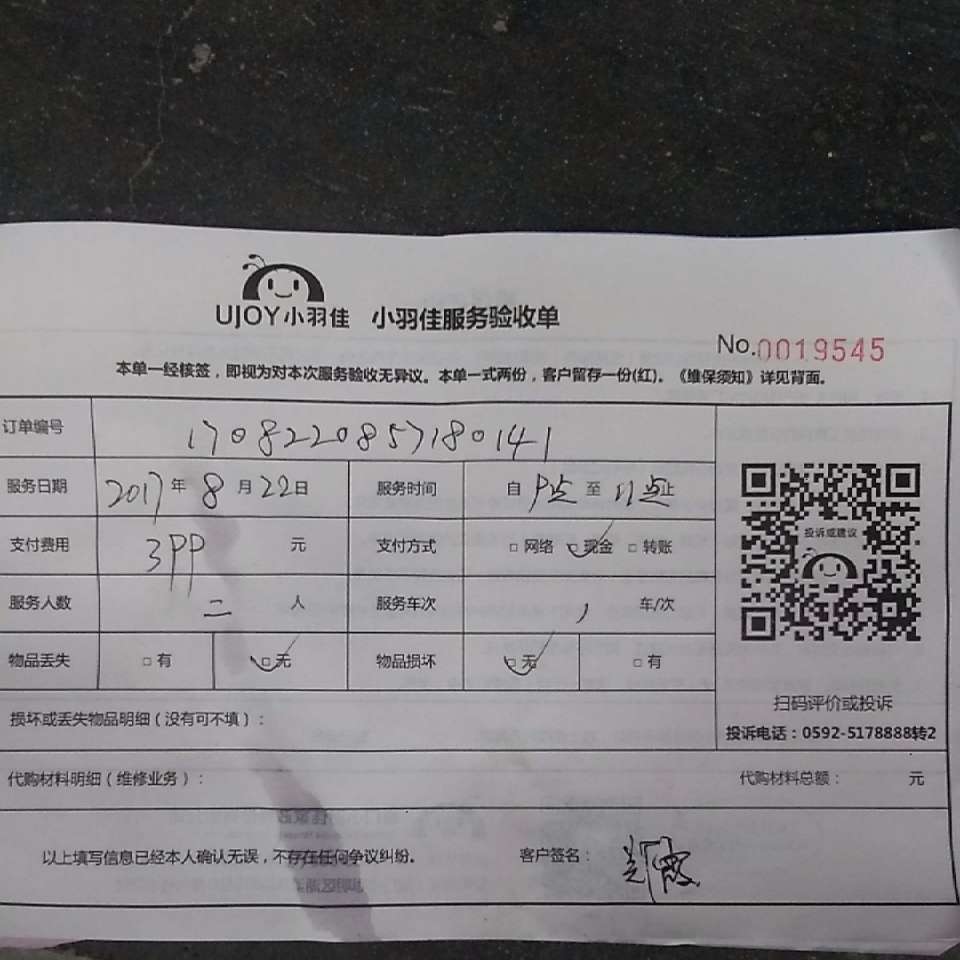 UJOY小羽佳 小羽佳服务验收单
No.0019545
本单一经核签，即视为对本次服务验收无异议。本单一式两份，客户留存一份(红)。《维保须知》详见背面。
订单编号 1708220857180141
服务日期 2017年8月22日 服务时间 自 9点 至 11点止
支付费用 399 元 支付方式 □网络 □现金 □转账
服务人数 二 人 服务车次 1 车/次
物品丢失 □有 □无 物品损坏 □无 □有
投诉或建议
扫码评价或投诉
投诉电话：0592-5178888转2
损坏或丢失物品明细（没有可不填）：
代购材料明细（维修业务）： 代购材料总额： 元
以上填写信息已经本人确认无误，不存在任何争议纠纷。 客户签名：